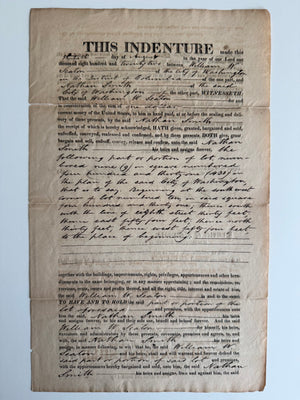 THIS INDENTURE made this
day of August in the year of our Lord one
thousand eight hundred and twenty five, between William W.
Seaton of the City of Washington
in the District of Columbia of the one part, and
Nathan Smith of the said
City of Washington of the other part, WITNESSETH
That the said William W. Seaton for and
in consideration of the sum of one dollar
current money of the United States, to him in hand paid, at or before the sealing and
delivery of these presents, by the said Nathan Smith
the receipt of which is hereby acknowledged, HATH given, granted, bargained and sold,
enfeoffed, conveyed, released and confirmed, and by these presents DOTH give, grant
bargain and sell, enfeoff, convey, release and confirm, unto the said Nathan
Smith his heirs and assigns forever. The
following part or portion of lot num-
bered nine (9) in square numbered
four hundred and thirty one (431) in
the plan of the said City of Washington
that is to say. Beginning at the southwest
corner of lot numbered ten in said square
four hundred and thirty one; thence south
with the line of eighth street thirty feet,
thence east fifty four feet, thence north
thirty feet, thence west fifty four feet
to the place of beginning.
together with the buildings, improvements, rights, privileges, appurtenances and other here-
ditaments to the same belonging, or in any manner appertaining; and the remainders, re-
versions, rents, issues and profits thereof, and all the right, title, interest and estate of him
the said William W. Seaton in and to the same.
TO HAVE AND TO HOLD the said part or portion of the
lot aforesaid and premises, with the appurtenances unto
the said Nathan Smith his heirs
and assigns forever, to his and their sole use and behoof forever. And the said
William W. Seaton for himself, his heirs,
executors and administrators by these presents, covenants, promises and agrees, to and
with, the said Nathan Smith his heirs and
assigns, in manner following, to wit: that he, the said William W.
Seaton and his heirs, shall and will warrant and forever defend the
said part or portion of said lot and premises,
with the appurtenances hereby bargained and sold, unto him, the said Nathan
Smith his heirs and assigns, from and against him, the said